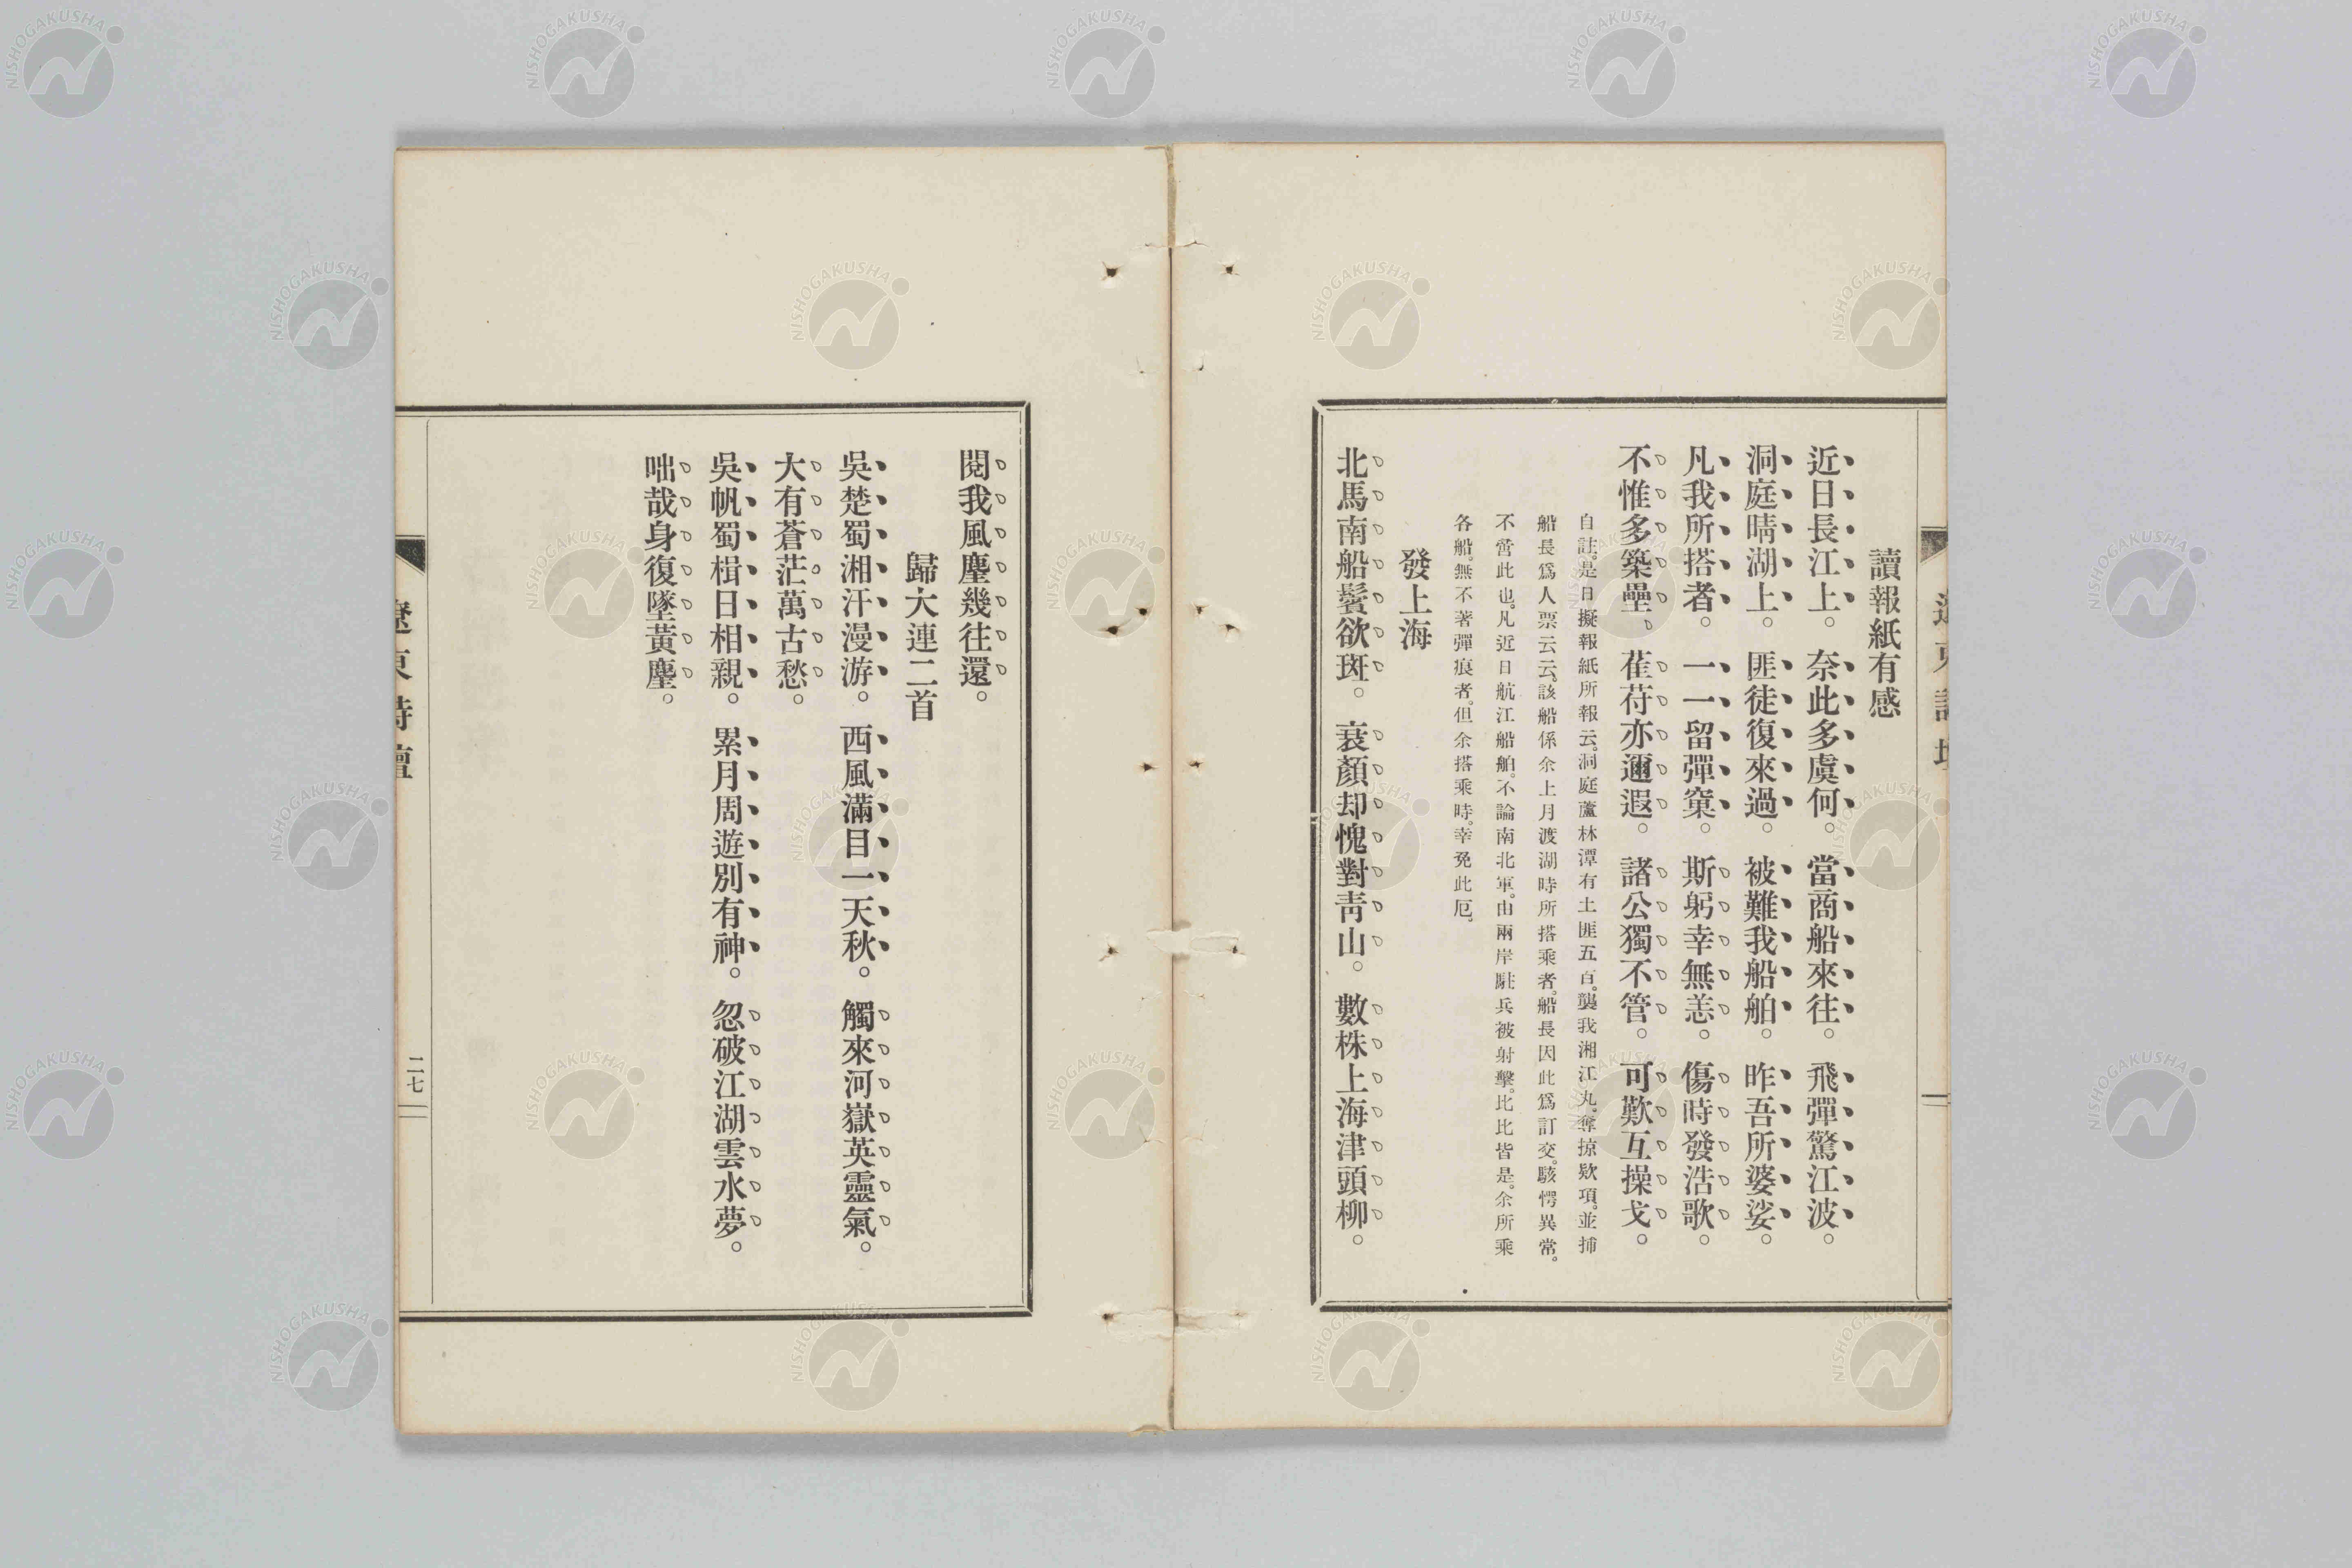 讀報紙有感
近日長江上。奈此多虞何。當商船來往。飛彈驚江波。
洞庭晴湖上。匪徒復來過。被難我船舶。昨吾所婆娑。
凡我所搭者。一一留彈窠。斯躬幸無恙。傷時發浩歌。
不惟多築壘、萑苻亦邇遐。諸公獨不管。可歎互操戈。
自註。是日擬報紙所報云。洞庭蘆林潭有土匪五百。襲我湘江丸。奪掠欵項。並捕
船長爲人票云云。該船係余上月渡湖時所搭乘者。船長因此爲訂交。駭愕異常。
不啻此也。凡近日航江船舶。不論南北軍。由兩岸駐兵被射擊。比比皆是。余所乘
各船。無不著彈痕者。但余搭乘時。幸免此厄。
發上海
北馬南船鬢欲斑。衰顏却愧對靑山。數株上海津頭柳。
閱我風塵幾往還。
歸大連二首
吳楚蜀湘汗漫游。西風滿目一天秋。觸來河嶽英靈氣。
大有蒼茫萬古愁。
吳帆蜀楫日相親。累月周遊別有神。忽破江湖雲水夢。
咄哉身復墜黃塵。
遼東詩壇
二七
NISHOGAKUSHA